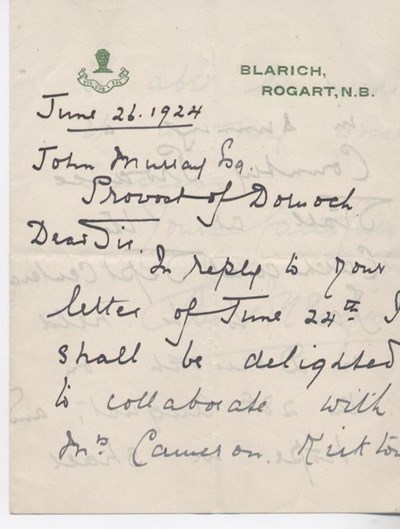 BLARICH,
ROGART, N.B.
June 26. 1924
John Murray Esq.
Provost of Dornoch
Dear Sir.
In reply to your
letter of June 24th I
shall be delighted
to collaborate with
Mrs Cameron. Kirkton